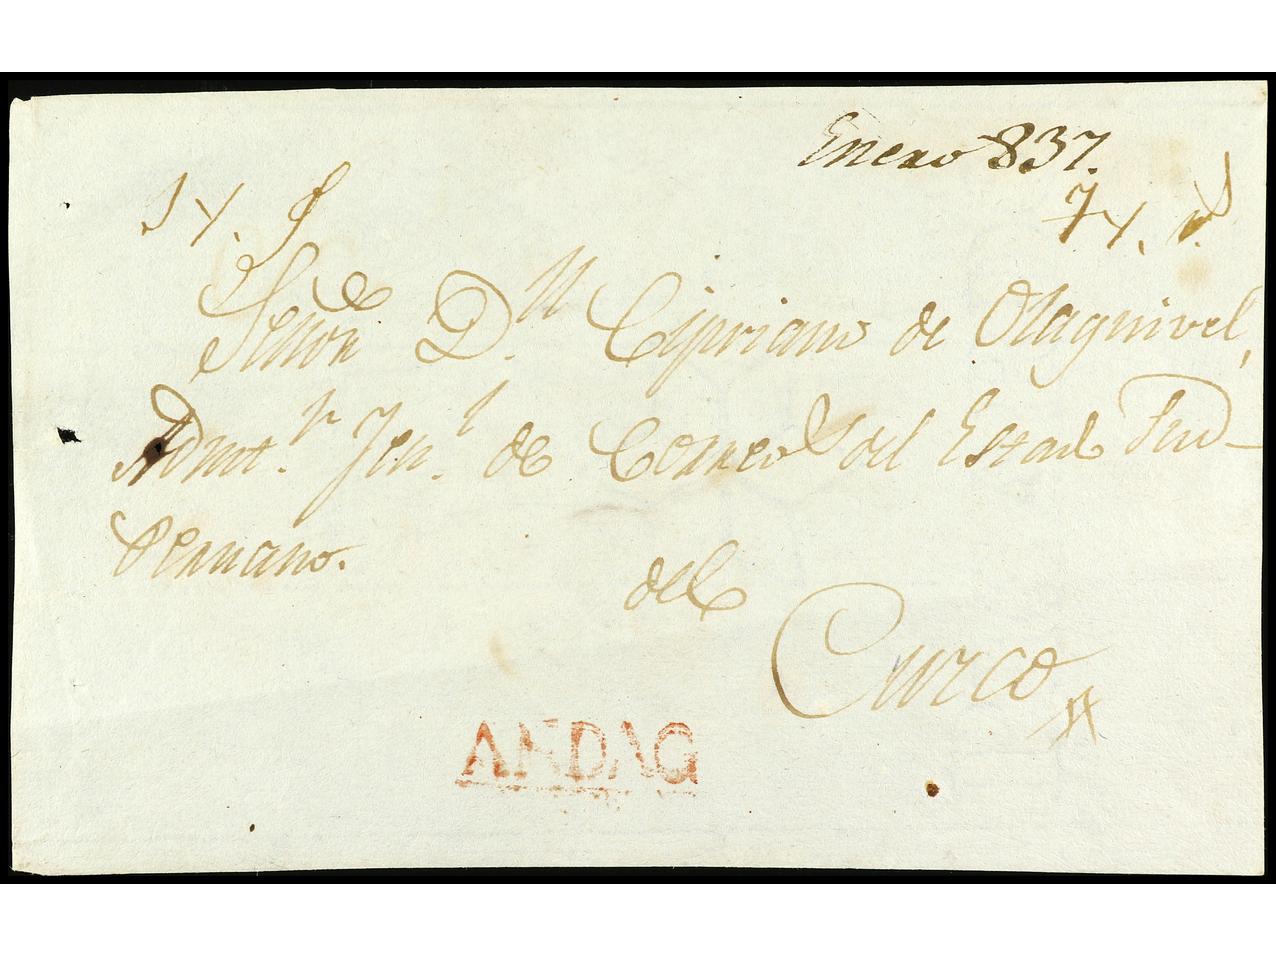 Enero 837.
Señor D.n Cipriano de Olaguivel,
Admt.r Jen.l de Correos del Estado Sud-
Peruano.
del
Cuzco
ANDAG